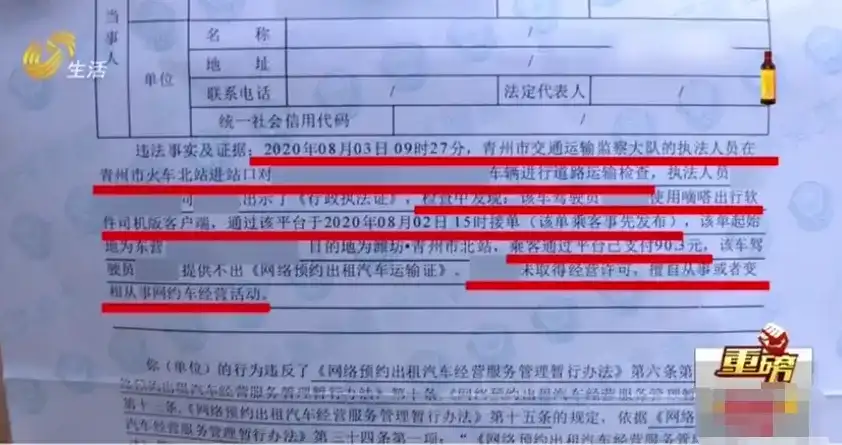 当事人
单位
名称 /
地址 /
联系电话 / 法定代表人 /
统一社会信用代码 /
生活
违法事实及证据：2020年08月03日09时27分，青州市交通运输监察大队的执法人员在
青州市火车北站进站口对 车辆进行道路运输检查，执法人员
司 出示了《行政执法证》，检查中发现：该车驾驶员 使用嘀嗒出行软
件司机版客户端，通过该平台于2020年08月02日15时接单（该单乘客事先发布），该单起始
地为东营 目的地为潍坊·青州市北站，乘客通过平台已支付90.3元，该车驾
驶员 提供不出《网络预约出租汽车运输证》。 未取得经营许可，擅自从事或者变
相从事网约车经营活动。
你（单位）的行为违反了《网络预约出租汽车经营服务管理暂行办法》第六条第
约出租汽车经营服务管理暂行办法》第十条、《网络预约出租汽车经营服务管理暂行办法》第
十二条、《网络预约出租汽车经营服务管理暂行办法》第十五条的规定，依据《网络
服务管理暂行办法》第三十四条第一项：“《网络预约出租汽车经
重磅